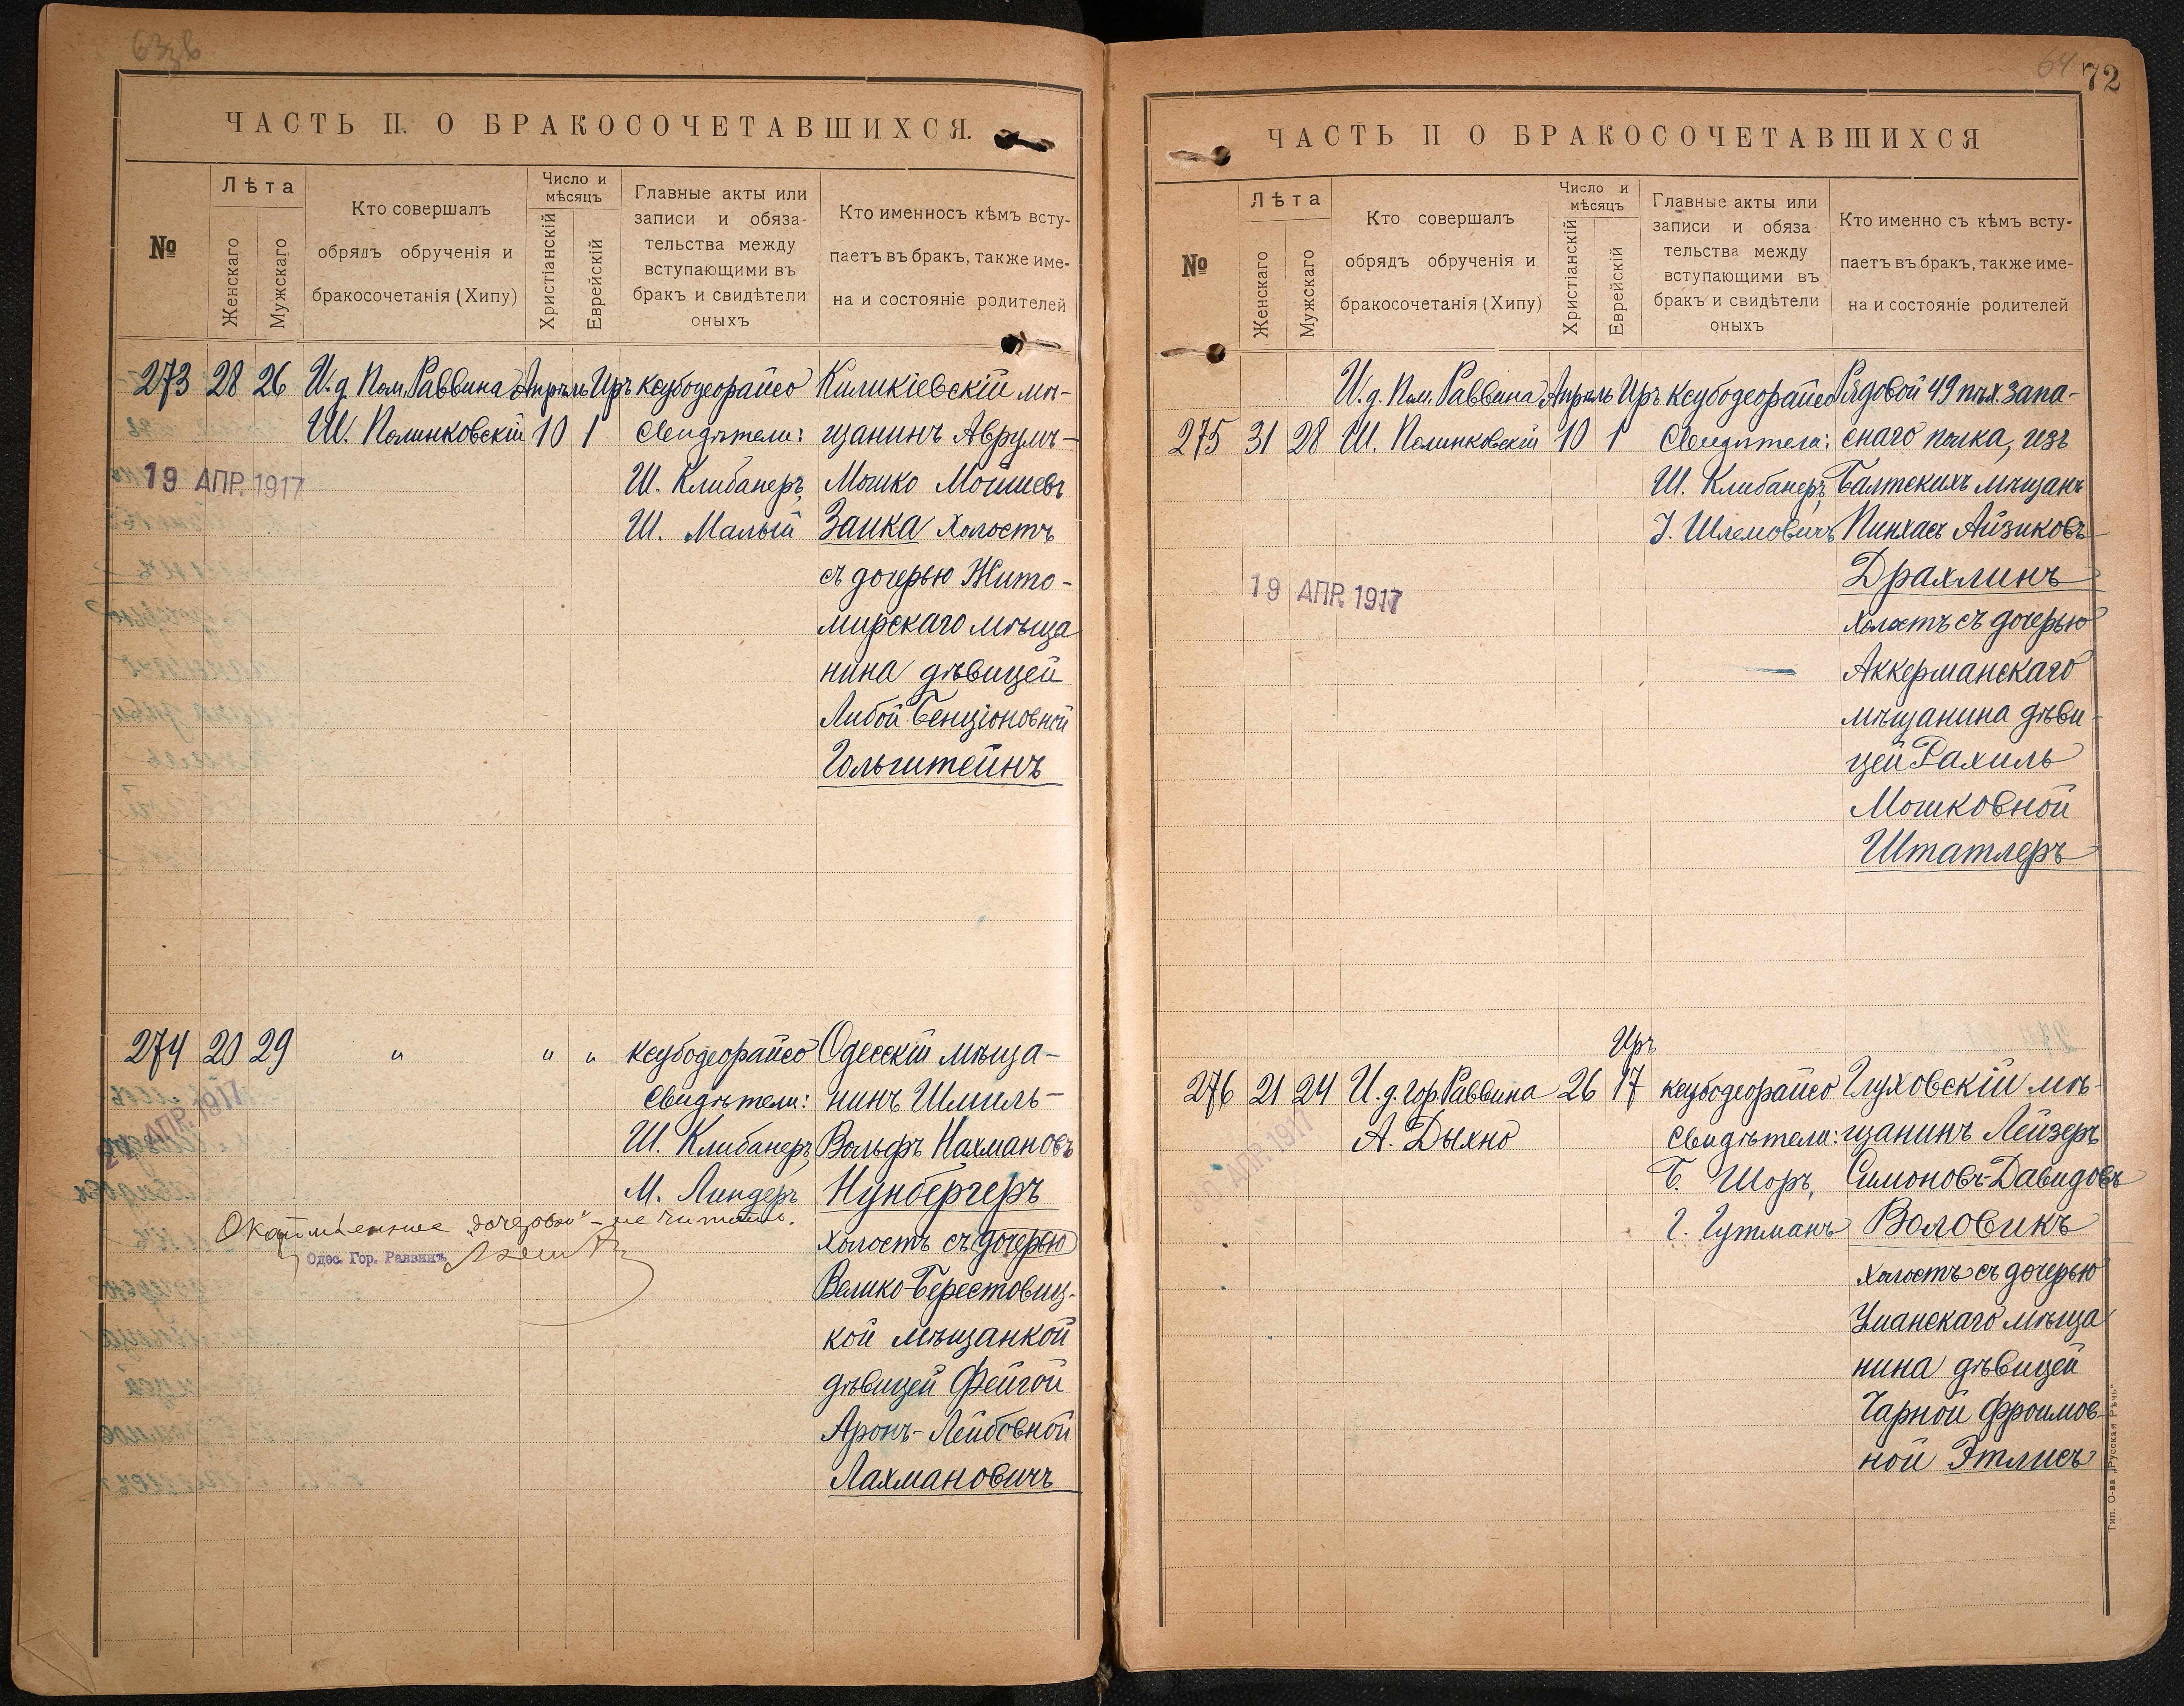 63зв
ЧАСТЬ II. О БРАКОСОЧЕТАВШИХСЯ.
№
Лѣта
Женскаго
Мужскаго
Кто совершалъ
обрядъ обрученія и
бракосочетанія (Хипу)
Число и
мѣсяцъ
Христіанскій
Еврейскій
Главные акты или
записи и обяза-
тельства между
вступающими въ
бракъ и свидѣтели
оныхъ
Кто именносъ кѣмъ всту-
паетъ въ бракъ, также име-
на и состояніе родителей
273 28 26 И. д. Пом. Раввина Апрѣль Иръ ксубодеорайсо Киликіевскій мѣ-
Ш. Полинковскій 10 1 Свидѣтели: щанинъ Аврумъ-
19 АПР. 1917 Ш. Клибанеръ, Мошко Мошиевъ
Ш. Малый Заика холостъ
съ дочерью Жито-
мирскаго мѣща
нина дѣвицей
Либой Бенціоновной
Гольгштейнъ
274 20 29 " " " ксубодеорайсо Одесскій мѣща-
Свидѣтели: нинъ Шмиль-
АПР. 1917 Ш. Клибанеръ, Вольфъ Нахмановъ
М. Линдеръ Нунбергеръ
"дочерью" - не читать.
Одес. Гор. Раввинъ
холостъ съ дочерью
Велико-Берестовиц-
кой мѣщанкой
дѣвицей Фейгой
Аронъ-Лейбовной
Лахмановичъ
64 72
ЧАСТЬ II О БРАКОСОЧЕТАВШИХСЯ
№
Лѣта
Женскаго
Мужскаго
Кто совершалъ
обрядъ обрученія и
бракосочетанія (Хипу)
Число и
мѣсяцъ
Христіанскій
Еврейскій
Главные акты или
записи и обяза
тельства между
вступающими въ
бракъ и свидѣтели
оныхъ
Кто именно съ кѣмъ всту-
паетъ въ бракъ, также име-
на и состояніе родителей
И. д. Пом. Раввина Апрѣль Иръ ксубодеорайсо Рядовой 49 пѣх. запа-
275 31 28 Ш. Полинковскій 10 1 Свидѣтели: снаго полка, изъ
Ш. Клибанеръ, Балтскихъ мѣщанъ
І. Шлемовичъ Пинхасъ Айзиковъ
19 АПР. 1917 Драхлинъ
холостъ съ дочерью
Аккерманскаго
мѣщанина дѣви-
цей Рахиль
Мошковной
Штатлеръ
Иръ
276 21 24 И. д. гор. Раввина 26 17 ксубодеорайсо Глуховскій мѣ-
А. Дыхно Свидѣтели: щанинъ Лейзеръ
АПР. 1917 Б. Шоръ, Симоновъ-Давидовъ
Г. Гутманъ Воловикъ
холостъ съ дочерью
Уманскаго мѣща
нина дѣвицей
Чарной Фроимов-
ной Этлисъ
Тип. О-ва „Русская Рѣчь“